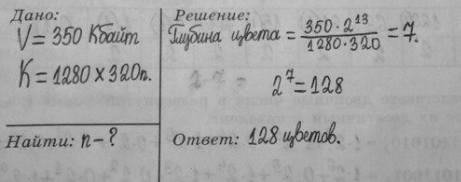 Дано:
V = 350 Кбайт
K = 1280 × 320п.
Найти: n - ?
Решение:
Глубина цвета = 350 · 2¹³ / 1280 · 320 = 7.
2⁷ = 128
Ответ: 128 цветов.